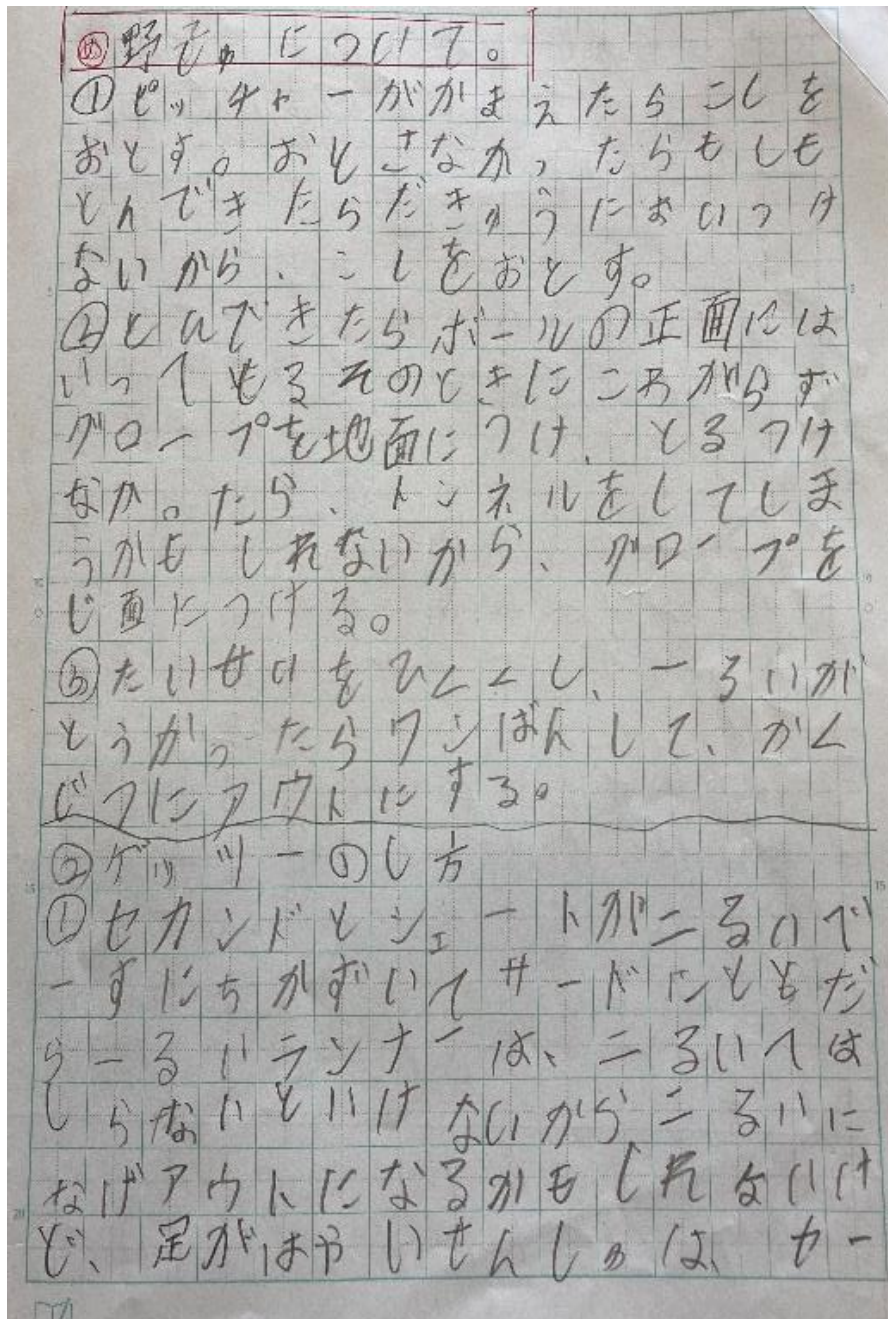 め 野きゅについて。
①ピッチャーがかまえたらこしを
おとす。おとさなかったらもしも
とんできたらだきゅうにおいつけ
ないから、こしをおとす。
②とんできたらボールの正面には
いってもるそのときにころがらず
グロープを地面につけ、とるつけ
なか。たら、トンネルをしてしま
うかもしれないから、グロープを
じ面につける。
③たいせいをひくくし、一るいが
とうかったらワンばんして、かく
じつにアウトにする。
②ゲッツーのし方
①セカンドとシェートがニるいべ
ーすにちかずいてサードにともだ
ら一るいランナーは、ニるいへは
しらないといけないからニるいに
なげアウトになるかもしれないけ
ど、足がはやいせんしゅは、セー